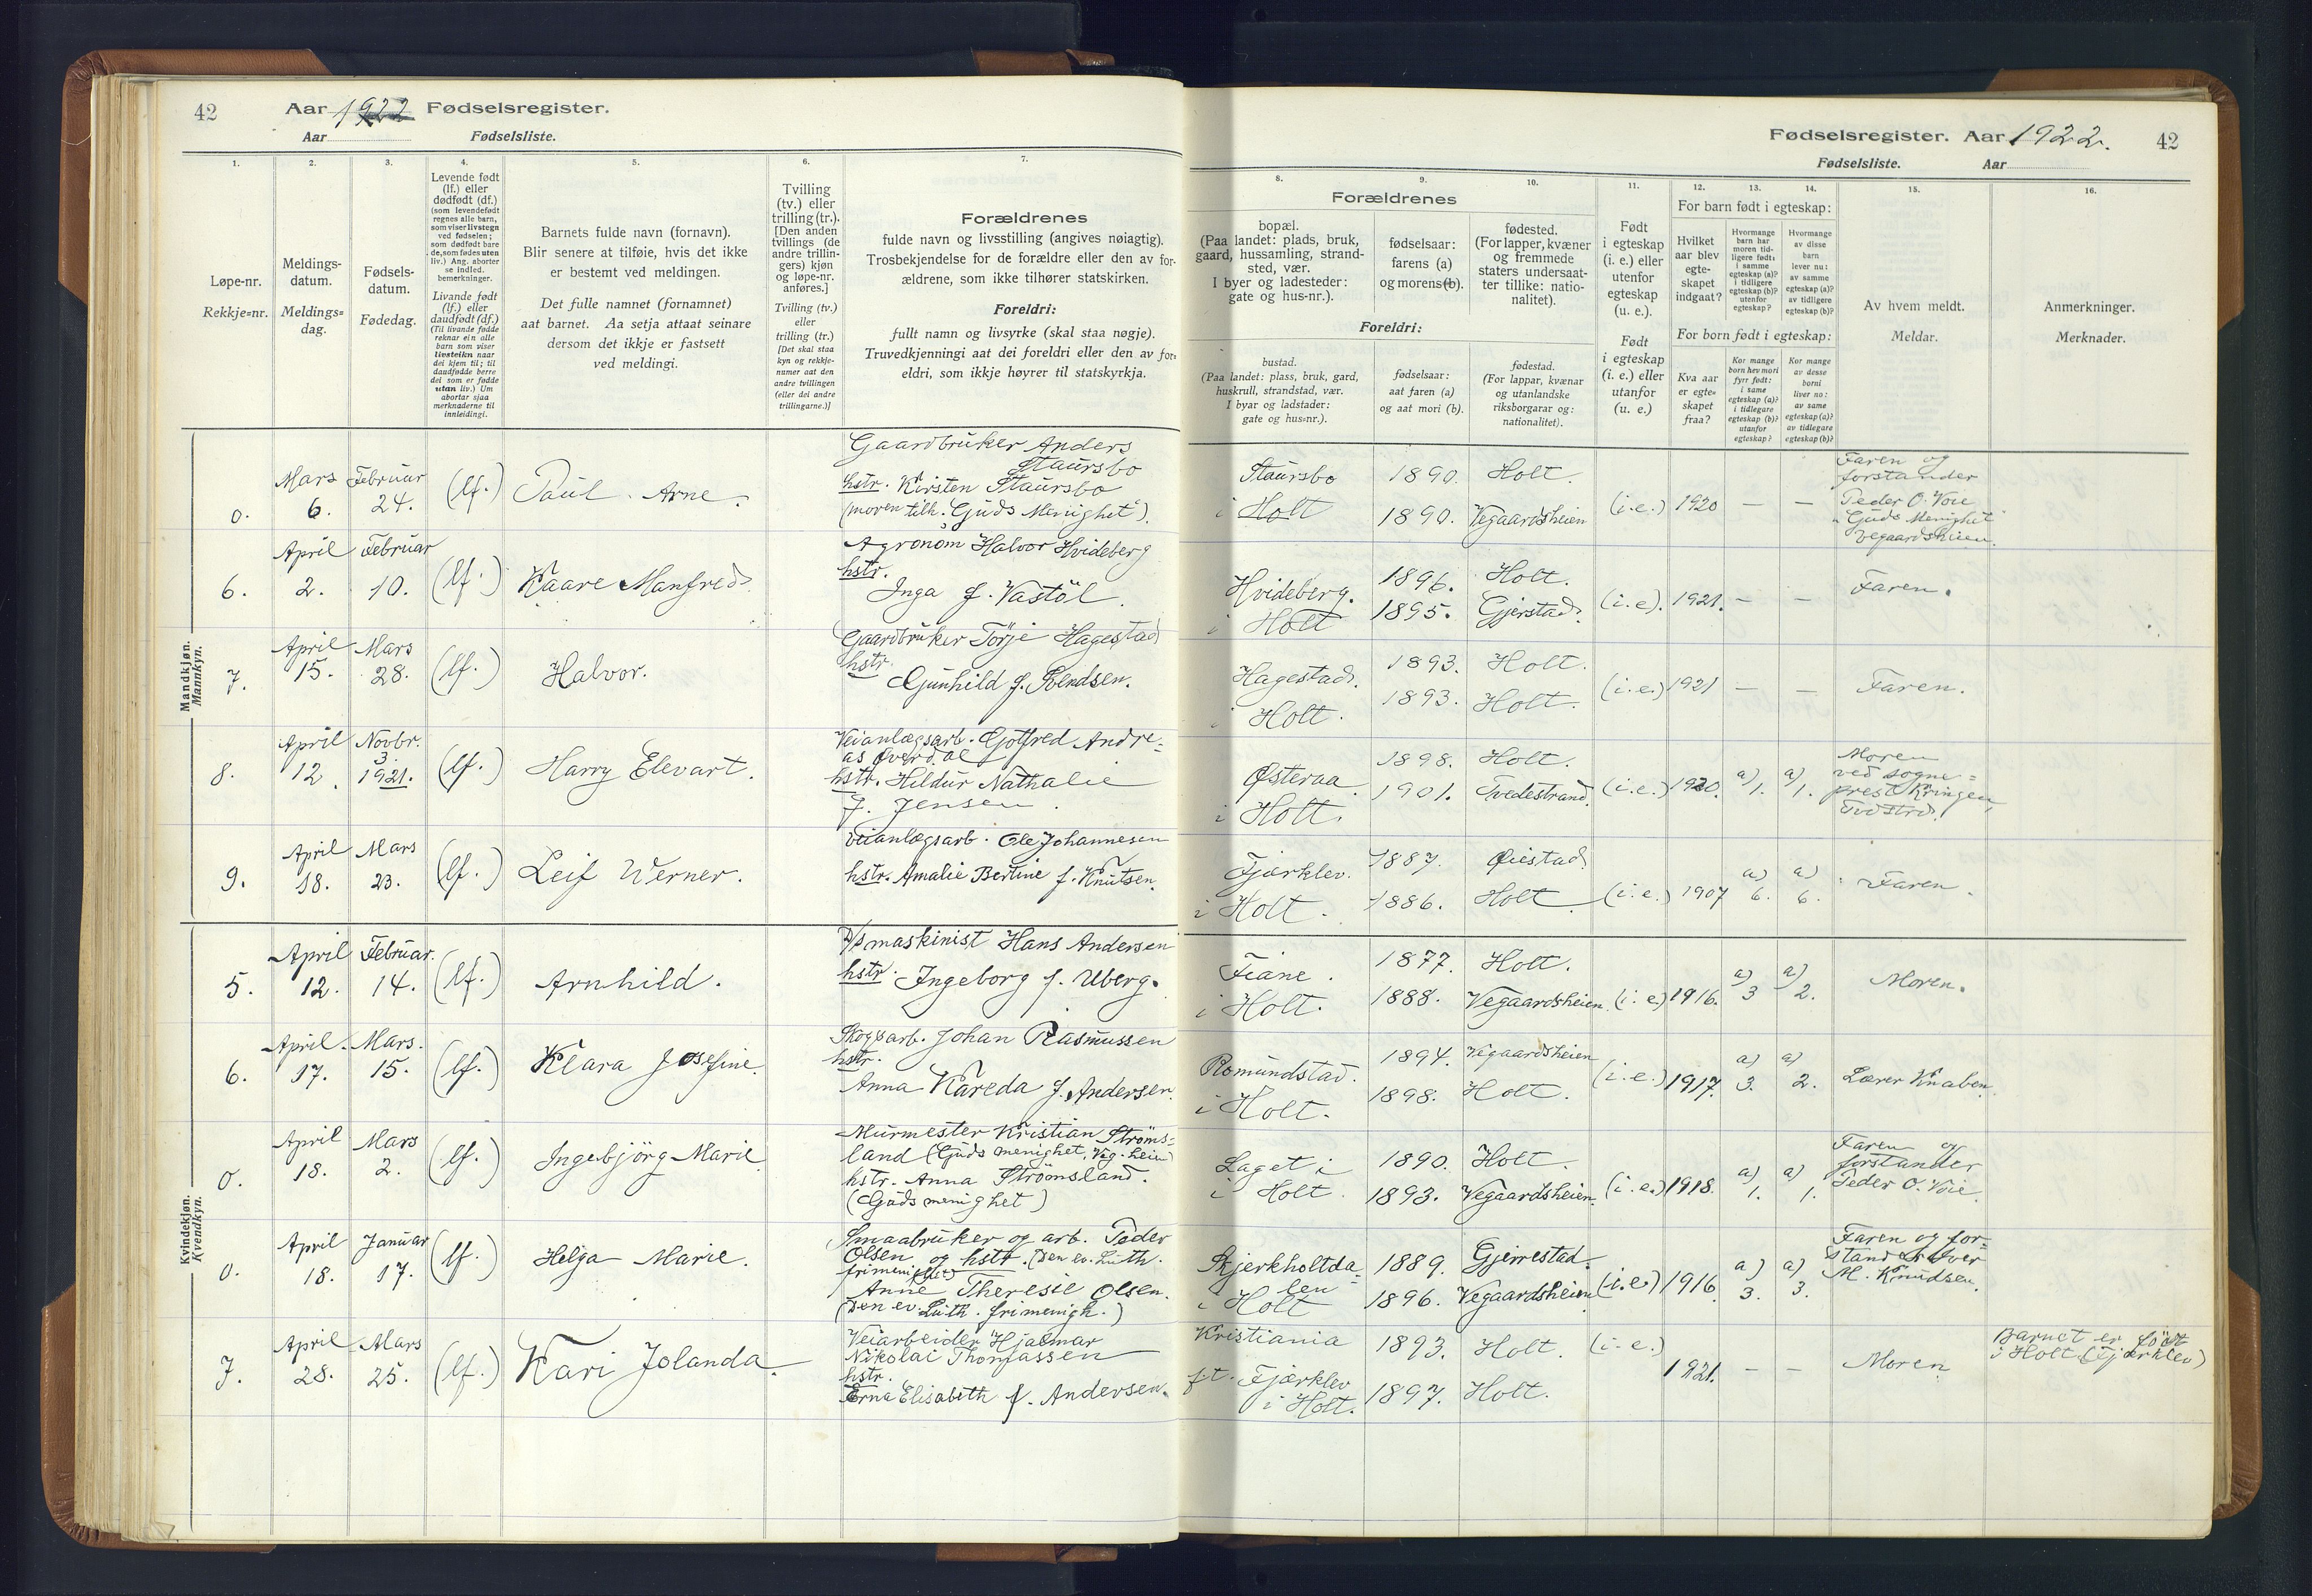 42
Aar 1922 Fødselsregister.
Aar Fødselsliste.
Fødselsregister. Aar 1922.
42
Fødselsliste. Aar
1.
Løpe-nr.
Rekkje=nr.
2.
Meldings-
datum.
Meldings=
dag.
3.
Fødsels-
datum.
Fødedag.
4.
Levende født
(lf.) eller
dødfødt (df.)
(som levendefødt
regnes alle barn,
som viser livstegn
ved fødselen;
som dødfødt bare
de, som fødes uten
liv.) Ang. aborter
se indled.
bemerkninger.
Livande født
(lf.) eller
daudfødt (df.)
(Til livande fødde
reknar ein alle
barn som viser
livsteikn naar
dei kjem til; til
daudfødde berre
dei som er fødde
utan liv.) Um
abortar sjaa
merknaderne til
innleidingi.
5.
Barnets fulde navn (fornavn).
Blir senere at tilføie, hvis det ikke
er bestemt ved meldingen.
Det fulle namnet (fornamnet)
aat barnet. Aa setja attaat seinare
dersom det ikkje er fastsett
ved meldingi.
6.
Tvilling
(tv.) eller
trilling (tr.).
[Den anden
tvillings (de
andre trillin-
gers) kjøn
og løpe-nr.
anføres.]
Tvilling (tv.)
eller
trilling (tr.)
[Det skal staa
kyn og rekkje-
numer aat den
andre tvillingen
(eller dei andre
trillingarne.)]
7.
Forældrenes
fulde navn og livsstilling (angives nøiagtig).
Trosbekjendelse for de forældre eller den av for-
ældrene, som ikke tilhører statskirken.
Foreldri:
fullt namn og livsyrke (skal staa nøgje).
Truvedkjenningi aat dei foreldri eller den av for=
eldri, som ikkje høyrer til statskyrkja.
8.
9.
10.
Forældrenes
bopæl.
(Paa landet: plads, bruk,
gaard, hussamling, strand-
sted, vær.
I byer og ladesteder:
gate og hus-nr.).
fødselsaar:
farens (a)
og morens (b).
fødested.
(For lapper, kvæner
og fremmede
staters undersaat-
ter tillike: natio-
nalitet).
Foreldri:
bustad.
(Paa landet: plass, bruk, gard,
huskrull, strandstad, vær.
I byar og ladstader:
gate og hus=nr.).
fødselsaar:
aat faren (a)
og aat mori (b).
fødestad.
(For lappar, kvænar
og utanlandske
riksborgarar og:
nationalitet).
11.
Født
i egteskap
(i. e.) eller
utenfor
egteskap
(u. e.).
Født
i egteskap
(i. e.) eller
utanfor
(u. e.)
12.
13.
14.
For barn født i egteskap:
Hvilket
aar blev
egte-
skapet
indgaat?
Hvormange
barn har
moren tid-
ligere født:
i samme
egteskap (a)?
i tidligere
egteskap (b)?
utenfor
egteskap?
Hvormange
av disse
barn
lever nu:
av samme
egteskap (a)?
av tidligere
egteskap (b)?
For born født i egteskap:
Kva aar
er egte=
skapet
fraa?
Kor mange
born hev mori
fyrr født:
i same
egteskap (a)?
i tidlegare
egteskap (b)?
utanfor
egteskap?
Kor mange
av desse
borni
liver no:
av same
egteskap (a)?
av tidlegare
egteskap (b)?
15.
Av hvem meldt.
Meldar.
16.
Anmerkninger.
Merknader.
Mandkjøn.
Mannkyn.
0. Mars 6. Februar 24. (lf.) Paul Arne.
Gaardbruker Anders
Staursbo
hstr. Kirsten Staursbo
(moren tilh. "Guds Menighet").
Staursbo
i Holt
1890. Holt.
1890. Vegaardsheien
(i.e.) 1920 — —
Faren og
forstander
Peder O. Voie
"Guds Menighet"
Vegaardsheien.
6. April 2. Februar 10. (lf.) Kaare Manfred.
Agronom Halvor Hvideberg
hstr.
Inga f. Vastöl.
Hvideberg.
i Holt
1896. Holt.
1895. Gjerstad.
(i.e). 1921. — — Faren.
7. April 15. Mars 28. (lf.) Halvor.
Gaardbruker Torje Hagestad
hstr.
Gunhild f. Svendsen.
Hagestad.
i Holt.
1893. Holt.
1893. Holt.
(i.e.) 1921 — — Faren.
8. April 12. Novbr. 3. 1921. (lf.) Harry Elevart.
Veianlægsarb. Gotfred Andre=
as Øverdal
hstr. Hildur Nathalie
f. Jensen.
Østeraa
i Holt.
1898. Holt.
1901. Tvedestrand.
(i.e.) 1920. a) 1. a) 1.
Moren
ved sogne=
prest Kringen
Tvdstrd.
9. April 18. Mars 23. (lf.) Leif Werner.
Veianlægsarb. Ole Johannesen
hstr. Amalie Bertine f. Knutsen.
Fjærklev.
i Holt.
1887. Øiestad
1886. Holt
(i.e.) 1907 a) 6. a) 6. Faren.
Kvindekjøn.
Kvendkyn.
5. April 12. Februar. 14. (lf.) Arnhild.
D/s maskinist Hans Andersen
hstr. Ingeborg f. Uberg.
Fiane.
i Holt.
1877. Holt.
1888. Vegaardsheien
(i.e) 1916. a) 3 a) 2. Moren.
6. April. 17. Mars. 15. (lf.) Klara Josefine.
Skogsarb. Johan Rasmussen
hstr.
Anna Kareda f. Andersen.
Romundstad.
i Holt.
1894. Vegaardsheien
1898. Holt.
(i.e.) 1917. a) 3. a) 2. Lærer Knaben.
0. April 18. Mars 2. (lf.) Ingebjörg Marie
Murmester Kristian Ströms=
land (Guds menighet, Veg.heien)
hstr. Anna Strömsland.
(Guds menighet)
Laget i
i Holt.
1890. Holt.
1893. Vegaardsheien
(i.e.) 1918. a) 1. a) 1.
Faren og
forstander
Peder O. Voie.
0. April 18. Januar 17. (lf.) Helga Marie.
Smaabruker og arb. Peder
Olsen og hstr. (Den ev. Luth.
frimenighet)
Anne Theresie Olsen.
(Den ev. Luth. frimenigh.)
Skjerkholtda=
len
i Holt
1889. Gjerrestad.
1896. Vegaardsheien
(i.e.) 1916. a) 3. a) 3.
Faren og for=
stander Iver
M. Knudsen.
7. April 28. Mars 25. (lf.) Kari Jolanda.
Veiarbeider Hjalmar
Nikolai Thomassen
hstr.
Erna Elisabeth f. Andersen.
Kristiania
f.t. Fjærklev
i Holt.
1893. Holt.
1897. Holt.
(i.e.) 1921. — — Moren.
Barnet er født
i Holt (Fjærklev)